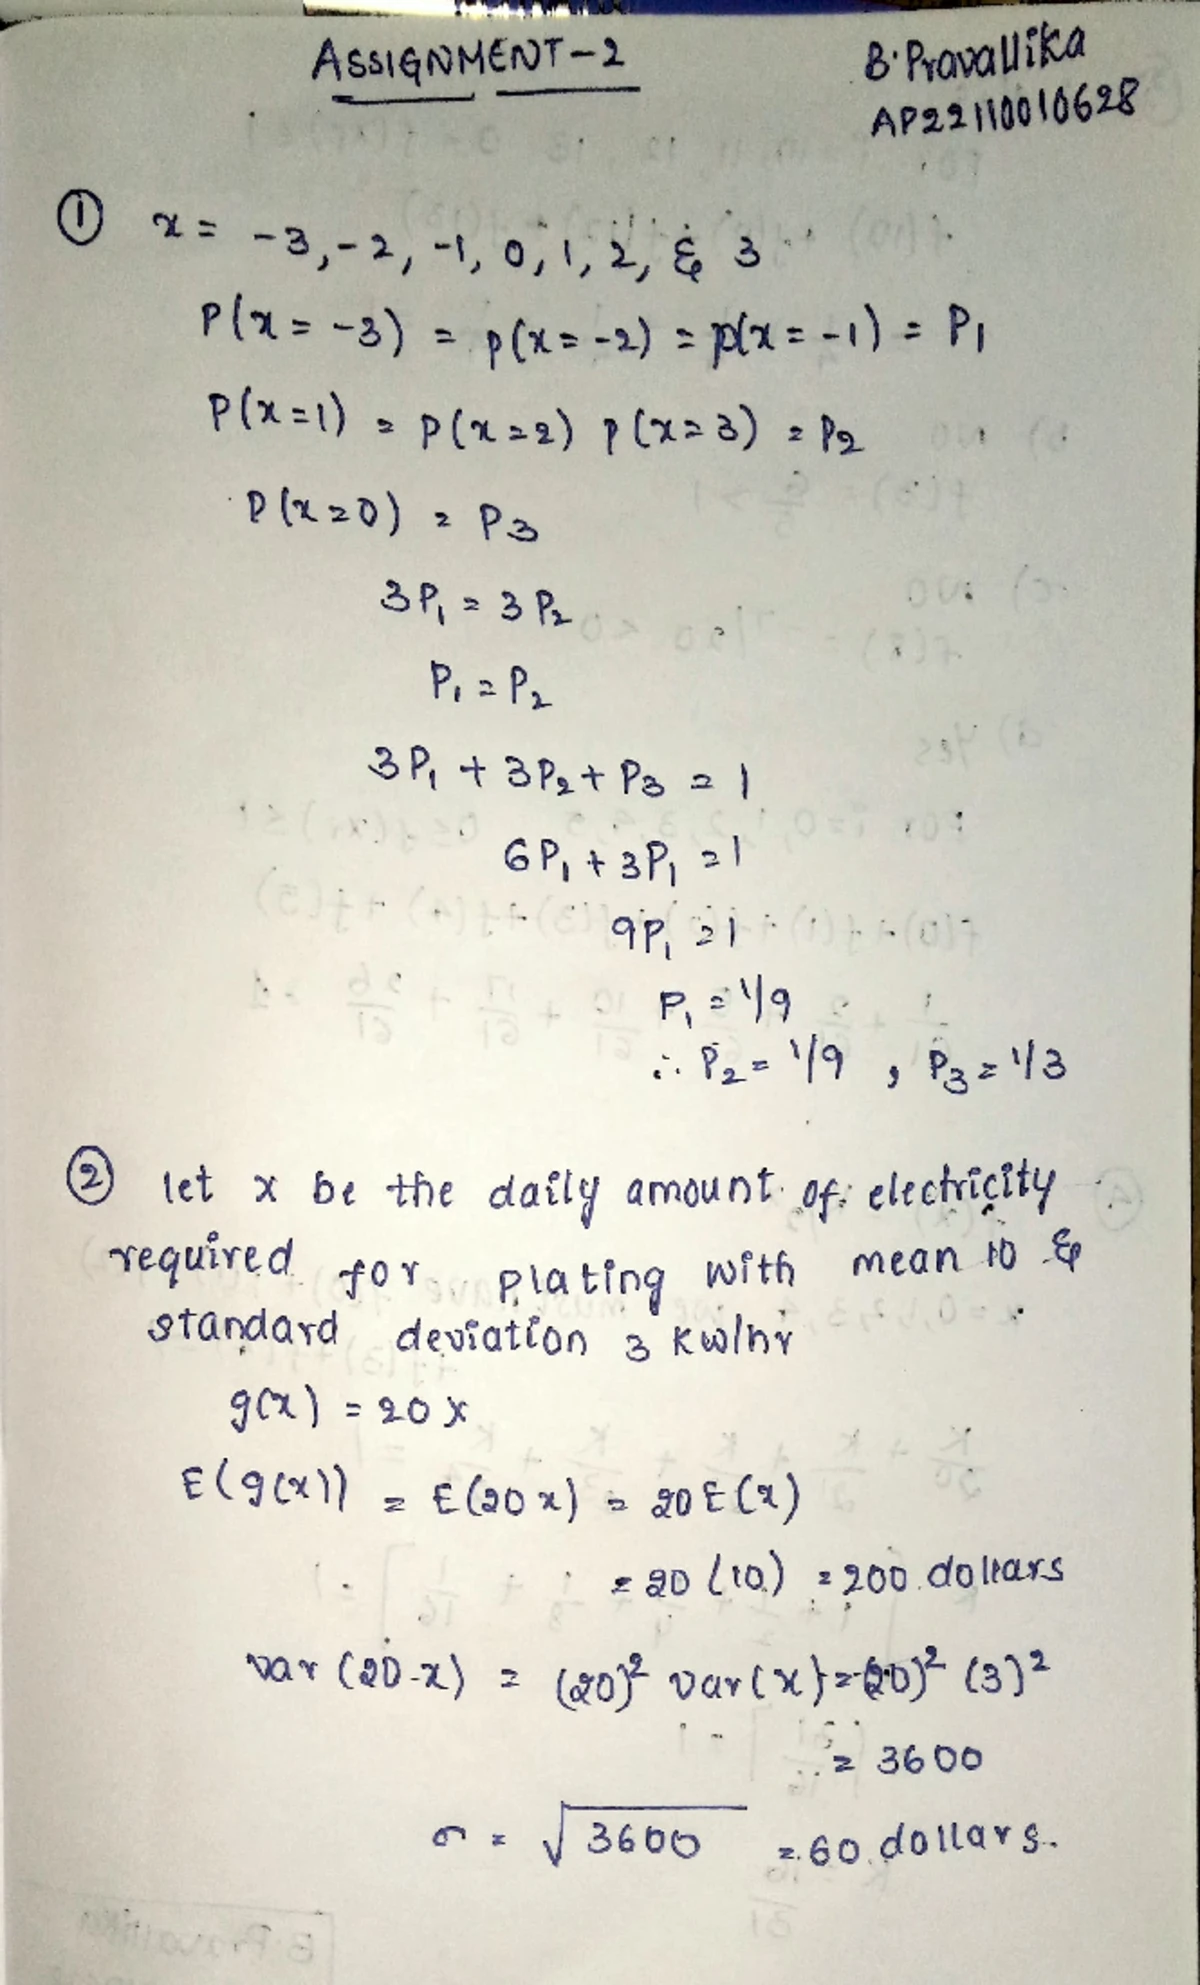 ASSIGNMENT-2
B.Pravallika
AP22110010628
① x = -3, -2, -1, 0, 1, 2, & 3
P(x = -3) = p(x = -2) = p(x = -1) = P₁
P(x=1) = P(x=2) p(x=3) = P₂
P(x=0) = P₃
3P₁ = 3P₂
P₁ = P₂
3P₁ + 3P₂ + P₃ = 1
6P₁ + 3P₁ = 1
9P₁ = 1
P₁ = 1/9
∴ P₂ = 1/9 , P₃ = 1/3
② let x be the daily amount of electricity
required for plating with mean 10 &
standard deviation 3 kw/hr
g(x) = 20x
E(g(x)) = E(20x) = 20E(x)
= 20(10) = 200 dollars
var(20x) = (20)² var(x) = (20)² (3)²
= 3600
σ = √3600 = 60 dollars.